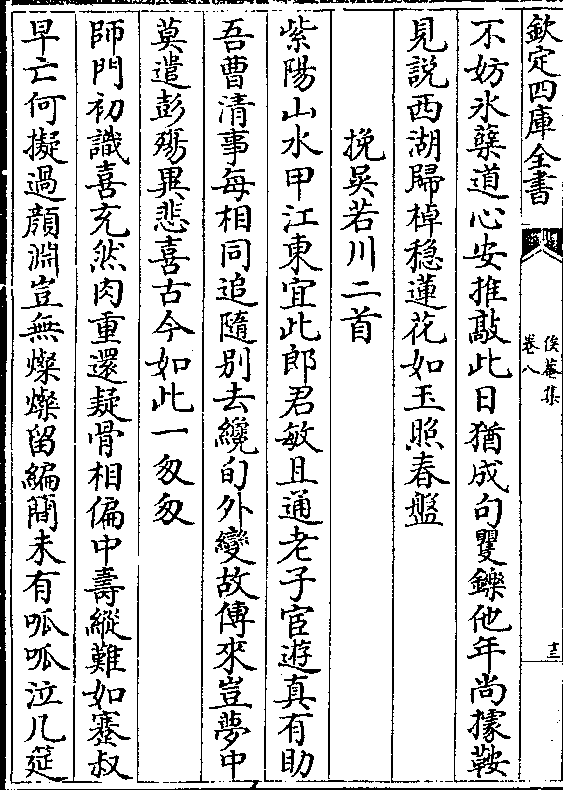 欽定四庫全書
俟菴集
卷八
十三
不妨氷蘖道心安推敲此日猶成句矍鑠他年尚據鞍
見説西湖歸棹穏蓮花如玉照春盤
挽吳若川二首
紫陽山水甲江東宜此郎君敏且通老子宦遊真有助
吾曹清事每相同追隨别去纔旬外變故傳來豈夢中
莫遣彭殤異悲喜古今如此一匆匆
師門初識喜充然肉重還疑骨相偏中壽縱難如蹇叔
早亡何擬過顔淵豈無燦燦留編簡未有呱呱泣几筵